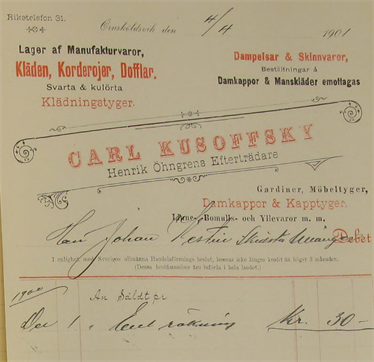 Rikstelefon 31.
Örnsköldsvik den 4/4 1901
Lager af Manufakturvaror,
Kläden, Korderojer, Dofflar.
Svarta & kulörta
Klädningstyger.
Dampelsar & Skinnvaror,
Beställningar å
Damkappor & Manskläder emottagas
CARL KUSOFFSKY
Henrik Öhngrens Efterträdare
Gardiner, Möbeltyger,
Damkappor & Kapptyger.
Linne- Bomulls- och Yllevaror m. m.
Herr Johan Debet
I enlighet med Sveriges allmänna Handelsförenings beslut, lemnas icke längre kredit än högst 3 månader.
1900 An Såldt pr
Dec 1 " Enl räkning Kr. 30-